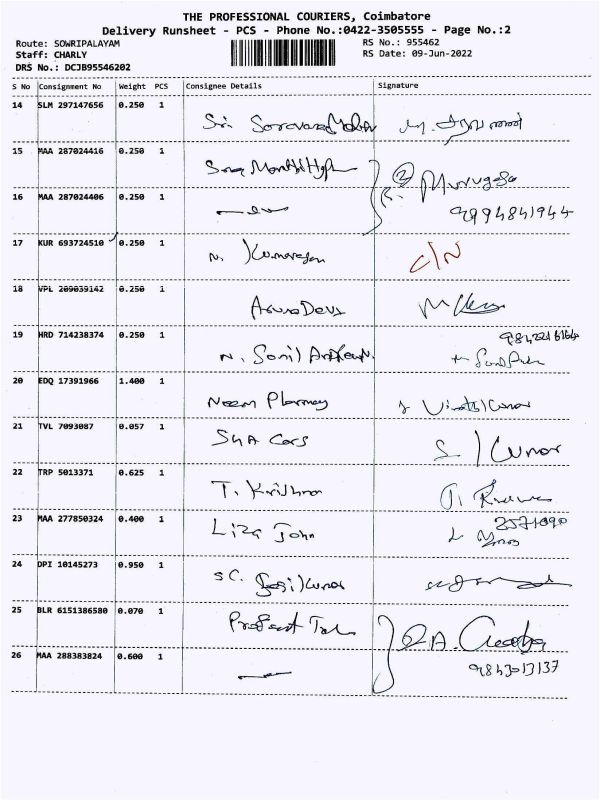 THE PROFESSIONAL COURIERS, Coimbatore
Delivery Runsheet - PCS - Phone No.:0422-3505555 - Page No.:2
Route: SOWRIPALAYAM
RS No.: 955462
Staff: CHARLY
RS Date: 09-Jun-2022
DRS No.: DCJB95546202
S No Consignment No Weight PCS Consignee Details Signature
14 SLM 297147656 0.250 1
Sri
15 MAA 287024416 0.250 1
16 MAA 287024406 0.250 1
② Murugesa
9994841944
17 KUR 693724510 0.250 1
N. Kumaresan C/N
18 VPL 209039142 0.250 1
Aruna Devi
19 HRD 714238374 0.250 1
N.
20 EDQ 17391966 1.400 1
Neem Pharmacy
21 TVL 7093087 0.057 1
SHA Cars S. Kumar
22 TRP 5013371 0.625 1
T. Krishna
23 MAA 277850324 0.400 1
Liza John
24 DPI 10145273 0.950 1
SC.
25 BLR 6151386580 0.070 1
26 MAA 288383824 0.600 1
9843013137